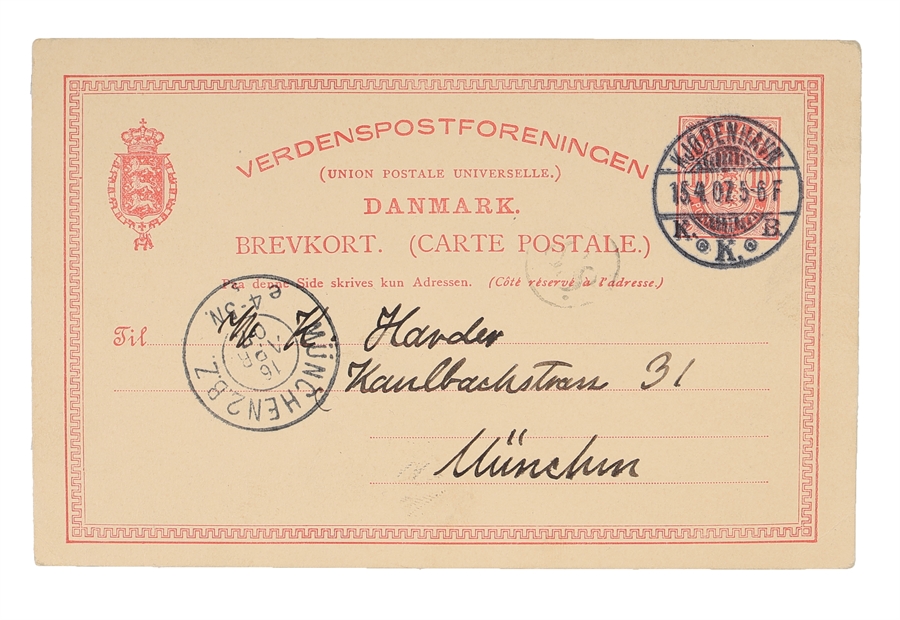 VERDENSPOSTFORENINGEN
(UNION POSTALE UNIVERSELLE.)
DANMARK.
BREVKORT. (CARTE POSTALE.)
Paa denne Side skrives kun Adressen. (Côté réservé à l'adresse.)
KJØBENHAVN
15.4.07.5-6F
K. K. B
10
MÜNCHEN 2 B.Z.
16 APR
e 4-5N.
Til H Harder
Kaulbachstrasse 31
München